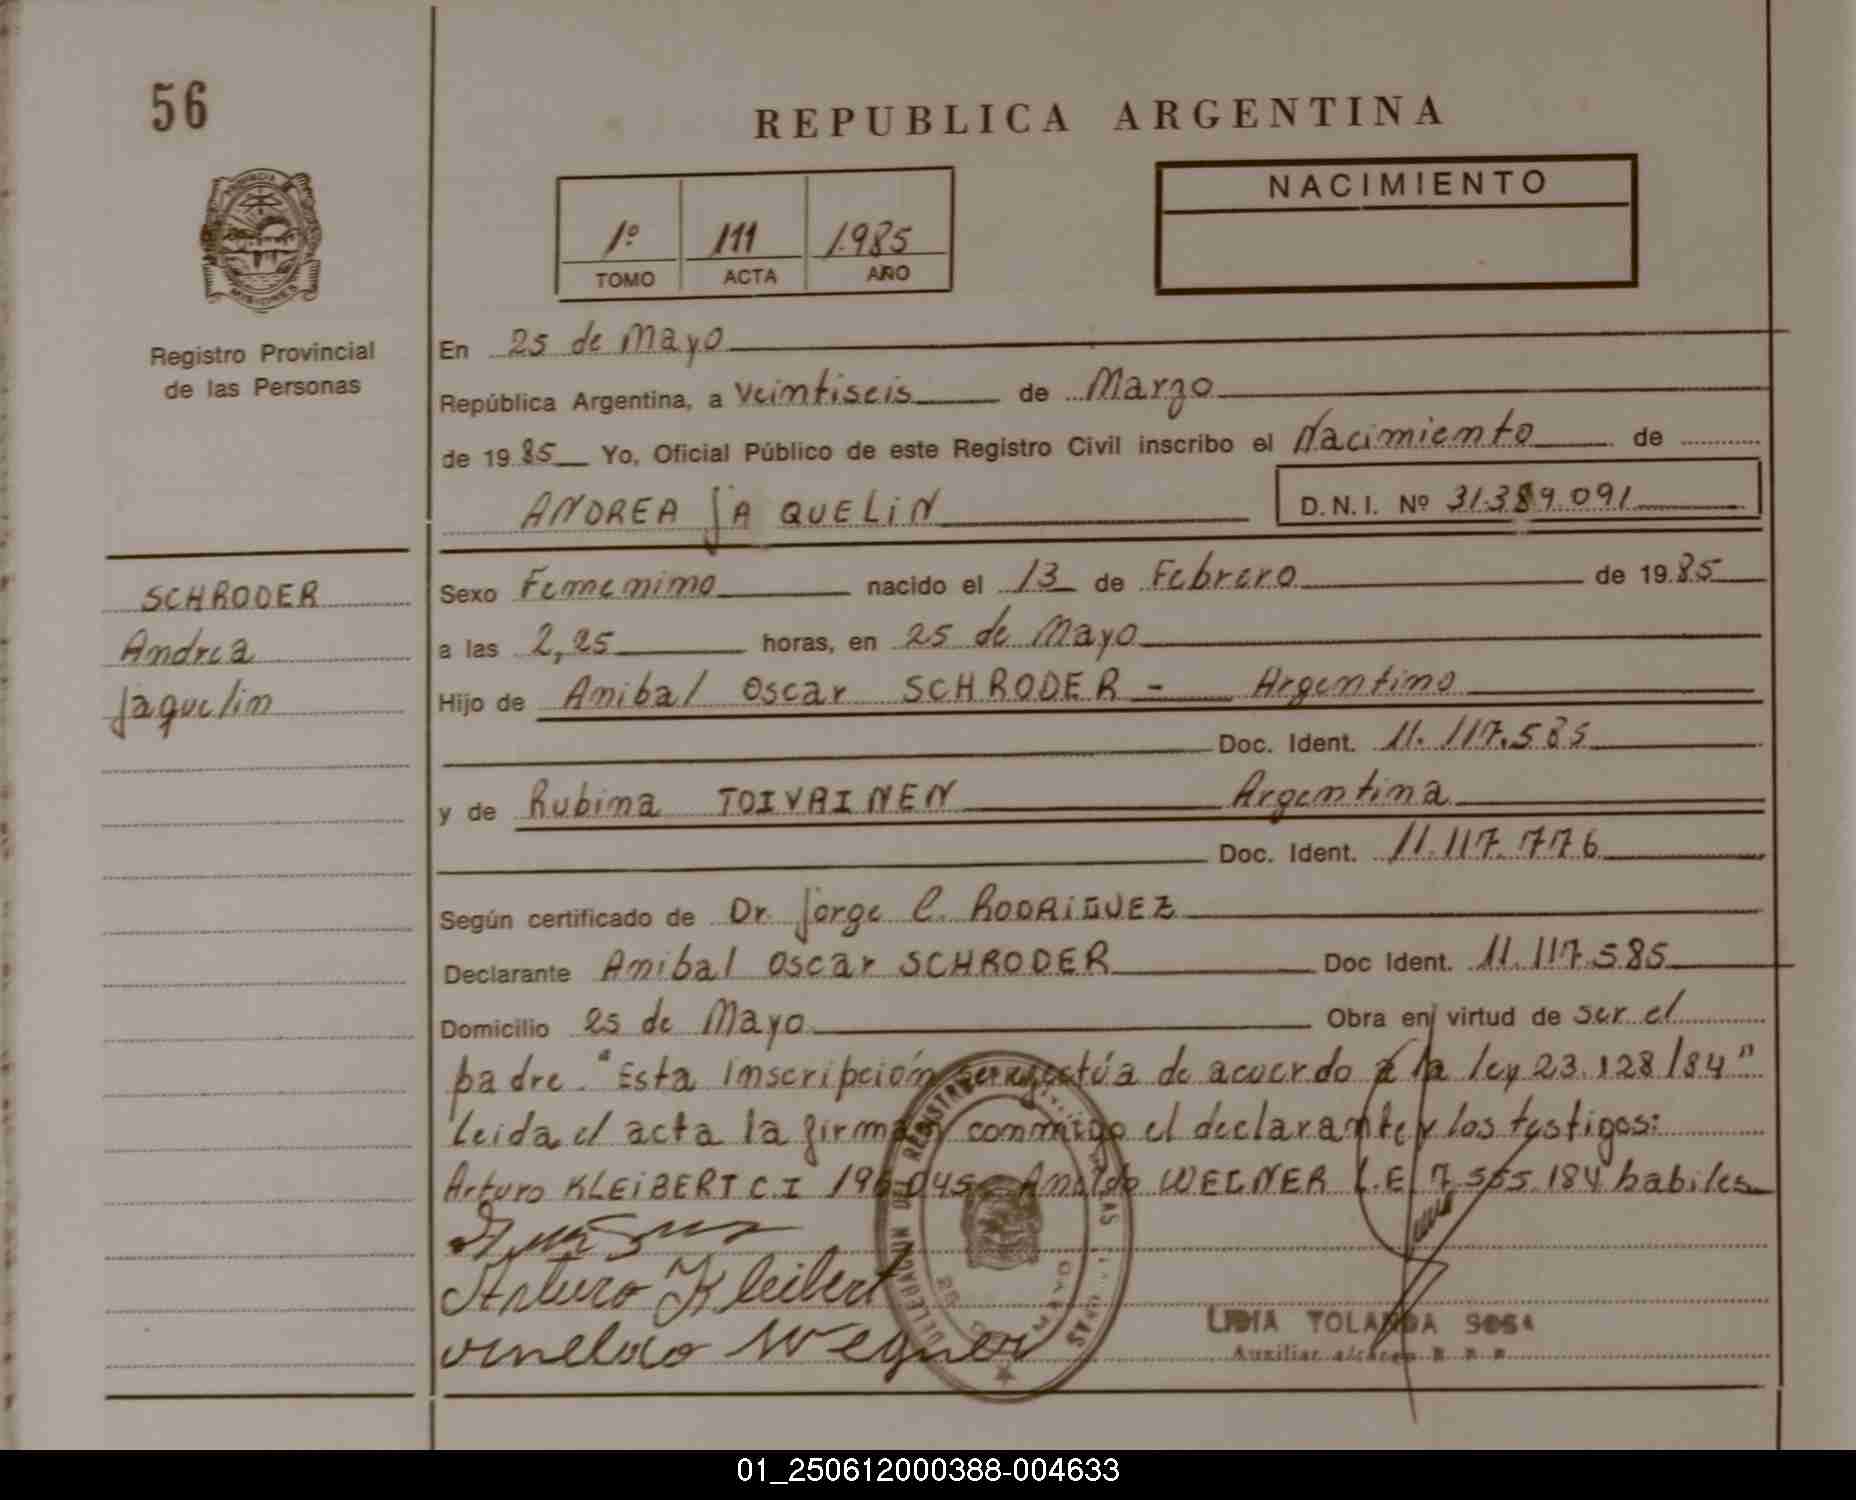 56
REPUBLICA ARGENTINA
1º 111 1985
TOMO ACTA AÑO
NACIMIENTO
PROVINCIA
MISIONES
Registro Provincial
de las Personas
En 25 de Mayo
República Argentina, a Veintiseis de Marzo
de 1985 Yo, Oficial Público de este Registro Civil inscribo el Nacimiento de
ANDREA JAQUELIN D.N.I. Nº 31.389.091
SCHRODER
Andrea
Jaquelin
Sexo Femenino nacido el 13 de Febrero de 1985
a las 2,25 horas, en 25 de Mayo
Hijo de Anibal Oscar SCHRODER - Argentino
Doc. Ident. 11.117.585
y de Rubina TOIVAINEN Argentina
Doc. Ident. 11.117.776
Según certificado de Dr. Jorge C. RODRIGUEZ
Declarante Anibal Oscar SCHRODER Doc Ident. 11.117.585
Domicilio 25 de Mayo Obra en virtud de ser el
padre. "Esta inscripción se efectúa de acuerdo a la ley 23.128/84"
leida el acta la firman conmigo el declarante y los testigos:
Arturo KLEIBERT C.I 196.045 WEGNER L.E 7.555.184 habiles
Arturo Kleibert
Wegner
DELEGACION DEL REGISTRO
LIDIA YOLANDA SOSA
Auxiliar
01_250612000388-004633